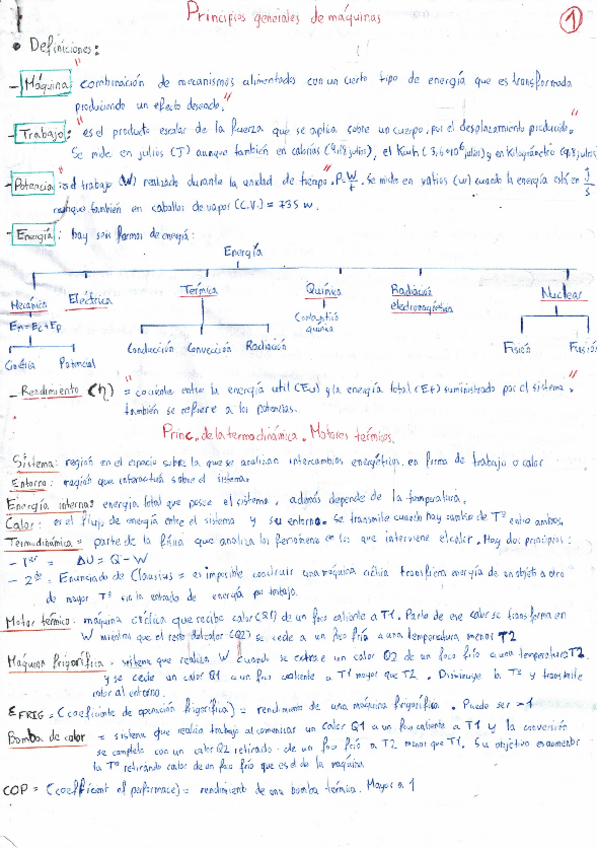 Principios generales de máquinas
1
• Definiciones:
- Máquina: "combinación de mecanismos alimentados con un cierto tipo de energía que es transformada
produciendo un efecto deseado."
- Trabajo: "es el producto escalar de la fuerza que se aplica sobre un cuerpo, por el desplazamiento producido."
Se mide en julios (J) aunque también en calorías (4,18 julios), el Kwh (3,6·10⁶ julios) y en Kilográmetro (9,8 julios)
- Potencia: es el trabajo (W) realizado durante la unidad de tiempo. P=W/t. Se mide en vatios (w) cuando la energía está en J/s
aunque también en caballos de vapor (C.V.) = 735 w.
- Energía: hay seis formas de energía:
Energía
Mecánica Eléctrica Térmica Química Radiación electromagnética Nuclear
Em=Ec+Ep Combustión química
Cinética Potencial Conducción Convección Radiación Fisión Fusión
- Rendimiento (η) = "cociente entre la energía util (Eu) y la energía total (Et) suministrada por el sistema."
también se refiere a las potencias.
Princ. de la termodinámica. Motores térmicos.
Sistema: región en el espacio sobre la que se analizan intercambios energéticos, en forma de trabajo o calor
Entorno: región que interactúa sobre el sistema.
Energía interna: energía total que posee el sistema, además depende de la temperatura.
Calor: es el flujo de energía entre el sistema y su entorno. Se transmite cuando hay cambio de Tª entre ambos.
Termodinámica = parte de la física que analiza los fenómenos en los que interviene el calor. Hay dos principios:
- 1er = ΔU = Q - W
- 2do = Enunciado de Clausius = es imposible construir una máquina cíclica transfiera energía de un objeto a otro
de mayor Tª sin la entrada de energía por trabajo.
Motor térmico: máquina cíclica que recibe calor (Q1) de un foco caliente a T1. Parte de ese calor se transforma en
W mientras que el resto del calor (Q2) se cede a un foco frío a una temperatura menor T2
Máquina frigorífica = sistema que realiza W cuando se extrae un calor Q2 de un foco frío a una temperatura T2.
y se cede un calor Q1 a un foco caliente a T1 mayor que T2. Disminuye la Tª y transmite
calor al entorno.
EFRIG = (coeficiente de operación frigorífica) = rendimiento de una máquina frigorífica. Puede ser >1
Bomba de calor = sistema que realiza trabajo al comenzar un calor Q1 a un foco caliente a T1 y la conversión
se completa con un calor Q2 retirado de un foco frío a T2 menor que T1. Su objetivo es aumentar
la Tª retirando calor de un foco frío que es el de la máquina.
COP = (coefficient of performace) = rendimiento de una bomba térmica. Mayor a 1